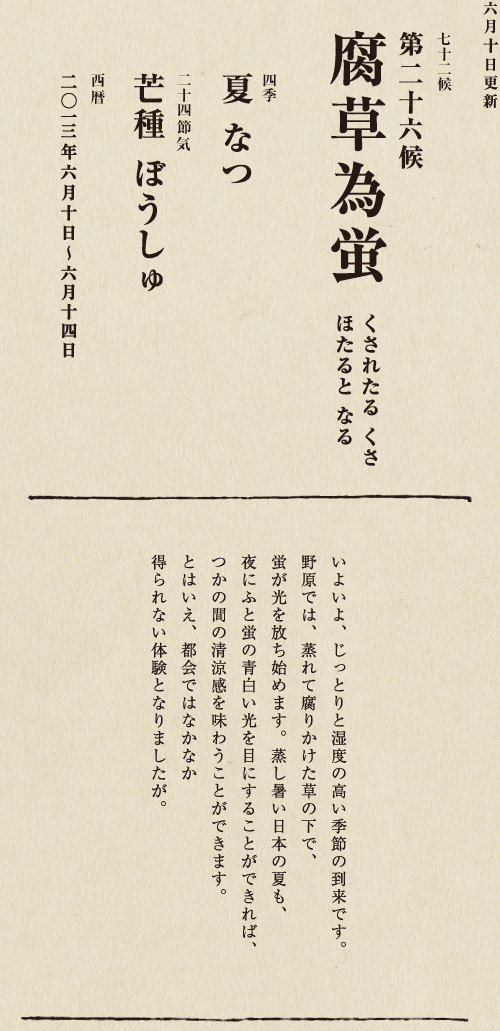 六月十日更新
七十二候
第二十六候
腐草為蛍
くされたる くさ
ほたると なる
四季
夏 なつ
二十四節気
芒種 ぼうしゅ
西暦
二〇一三年六月十日〜六月十四日
いよいよ、じっとりと湿度の高い季節の到来です。
野原では、蒸れて腐りかけた草の下で、
蛍が光を放ち始めます。蒸し暑い日本の夏も、
夜にふと蛍の青白い光を目にすることができれば、
つかの間の清涼感を味わうことができます。
とはいえ、都会ではなかなか
得られない体験となりましたが。